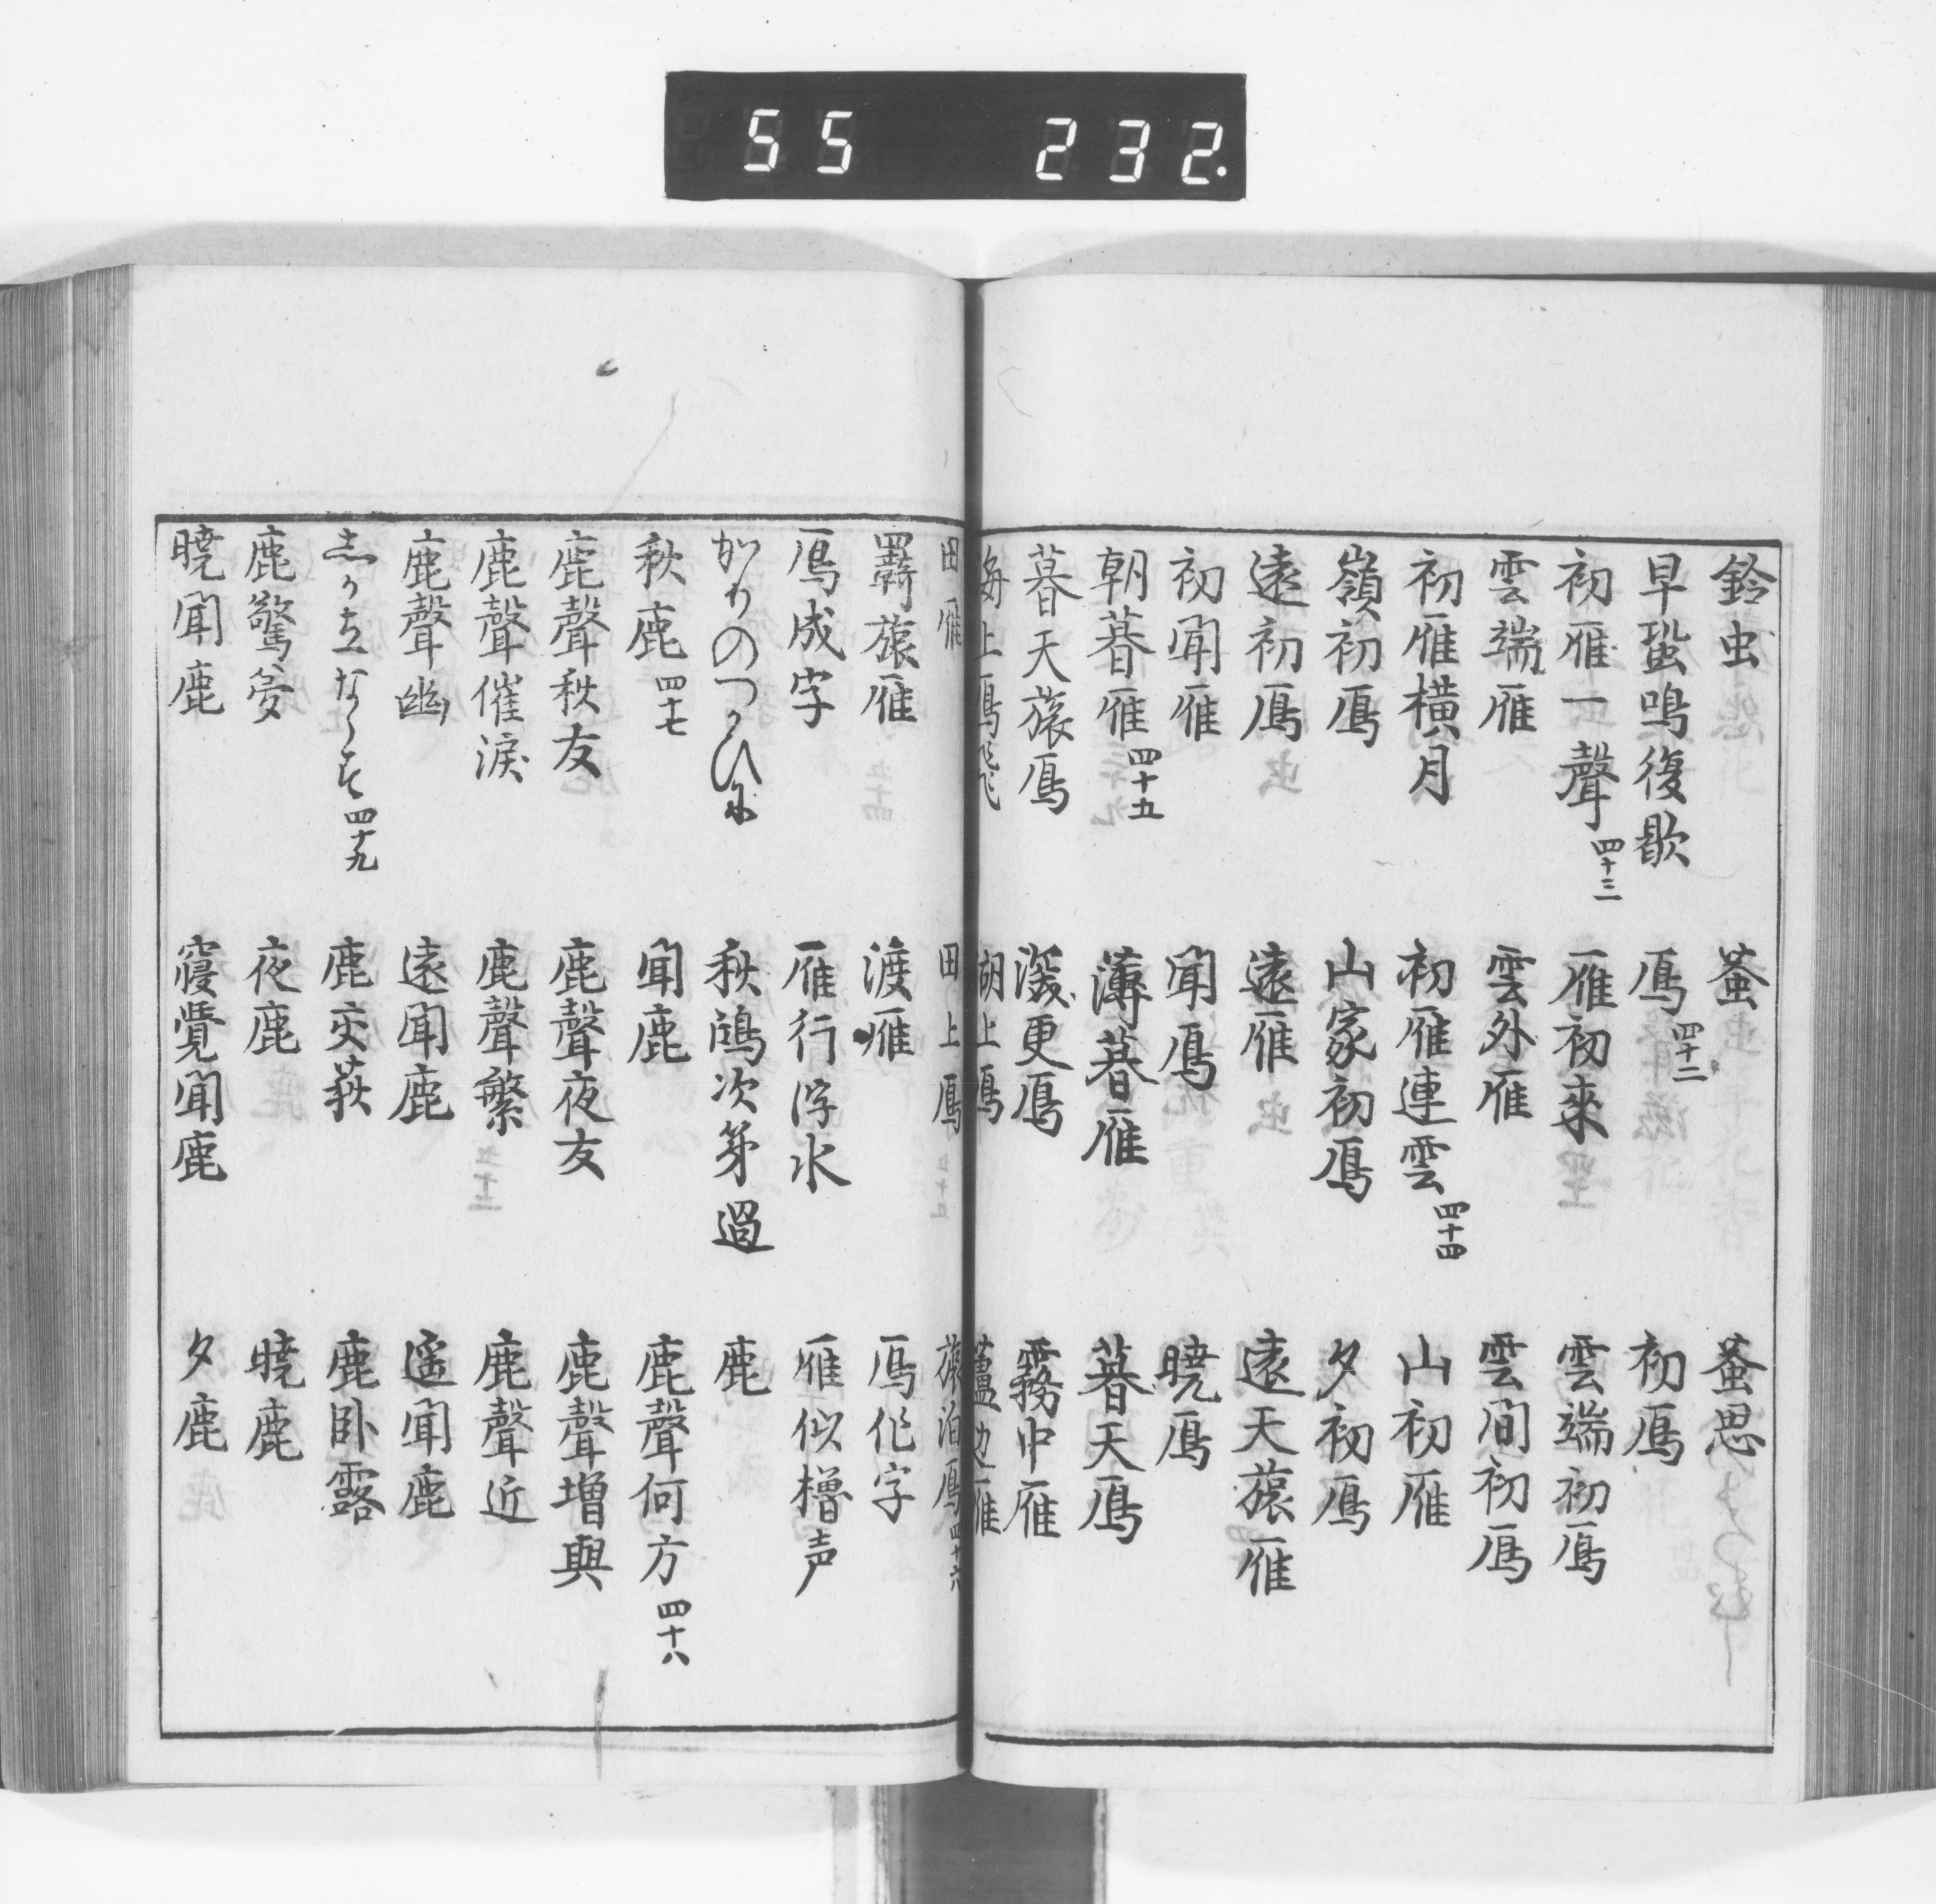 55 232.
鈴虫 蛬 蛬思
早蛩鳴復歇 鳫四十二 初鳫
初雁一聲四十三 雁初来 雲端初鳫
雲端雁 雲外雁 雲間初鳫
初雁横月 初雁連雲四十四 山初雁
嶺初鳫 山家初鳫 夕初鳫
遠初鳫 遠雁 遠天旅雁
初聞雁 聞鳫 暁鳫
朝暮雁四十五 薄暮雁 暮天鳫
暮天旅鳫 深更鳫 霧中雁
海上鳫飛 湖上鳫 蘆边雁
田雁 田上鳫 旅泊鳫四十六
羇旅雁 渡雁 鳫作字
鳫成字 雁行浮水 雁似櫓声
かりのつかひに 秋鴻次第過 鹿
秋鹿四十七 聞鹿 鹿聲何方四十八
鹿聲秋友 鹿聲夜友 鹿聲増興
鹿聲催涙 鹿聲繁 鹿聲近
鹿聲幽 遠聞鹿 遥聞鹿
しか立ならす四十九 鹿交萩 鹿卧露
鹿驚夢 夜鹿 暁鹿
暁聞鹿 寝覚聞鹿 夕鹿